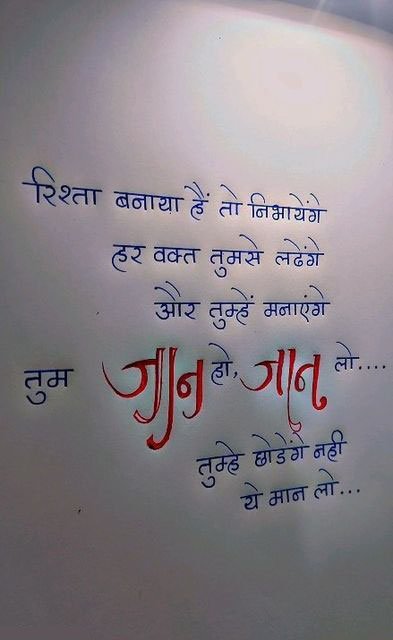 रिश्ता बनाया हैं तो निभायेंगे
हर वक्त तुमसे लढेंगे
और तुम्हें मनाएंगे
तुम जान हो, जान लो....
तुम्हे छोडेंगे नही
ये मान लो...